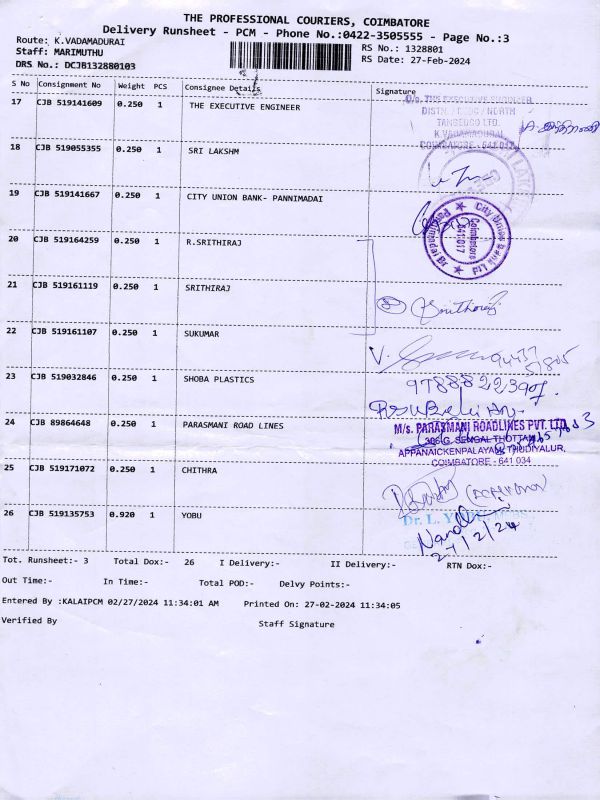 THE PROFESSIONAL COURIERS, COIMBATORE
Delivery Runsheet - PCM - Phone No.:0422-3505555 - Page No.:3
Route: K.VADAMADURAI
Staff: MARIMUTHU
DRS No.: DCJB132880103
RS No.: 1328801
RS Date: 27-Feb-2024
S No Consignment No Weight PCS Consignee Details Signature
17 CJB 519141609 0.250 1 THE EXECUTIVE ENGINEER
O/o. THE EXECUTIVE ENGINEER
TANGEDCO LTD.
K.VADAMADURAI
COIMBATORE - 641 017
18 CJB 519055355 0.250 1 SRI LAKSHM
19 CJB 519141667 0.250 1 CITY UNION BANK- PANNIMADAI
City Union Bank Ltd
Coimbatore
641 017
Pannimadai Br
20 CJB 519164259 0.250 1 R.SRITHIRAJ
21 CJB 519161119 0.250 1 SRITHIRAJ
Srithiraj
22 CJB 519161107 0.250 1 SUKUMAR
23 CJB 519032846 0.250 1 SHOBA PLASTICS
24 CJB 89864648 0.250 1 PARASMANI ROAD LINES
M/s. PARASMANI ROADLINES PVT. LTD.
306-G, SENGAL THOTTAM,
APPANAICKENPALAYAM, THUDIYALUR,
COIMBATORE - 641 034
25 CJB 519171072 0.250 1 CHITHRA
26 CJB 519135753 0.920 1 YOBU
Dr. L.
27/2/24
Tot. Runsheet:- 3 Total Dox:- 26 I Delivery:- II Delivery:- RTN Dox:-
Out Time:- In Time:- Total POD:- Delvy Points:-
Entered By :KALAIPCM 02/27/2024 11:34:01 AM Printed On: 27-02-2024 11:34:05
Verified By Staff Signature